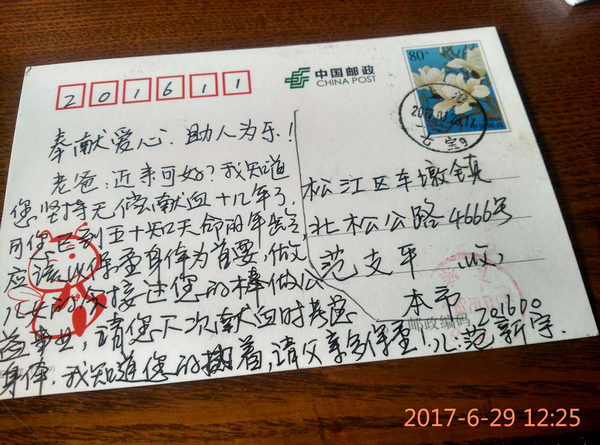 201611
中国邮政
CHINA POST
80分
2017.
奉献爱心、助人为乐!
老爸:近来可好?我知道
您坚持无偿献血十几年了,
可您已到五十知天命的年龄,
应该以保重身体为首要,做
儿女的会接过您的棒做公
益事业,请您下次献血时考虑
身体。我知道您的执着,请父亲多保重!儿范新宇.
松江区车墩镇
北松公路4666号
范支平 收
本市
邮政编码
201600
2017-6-29 12:25